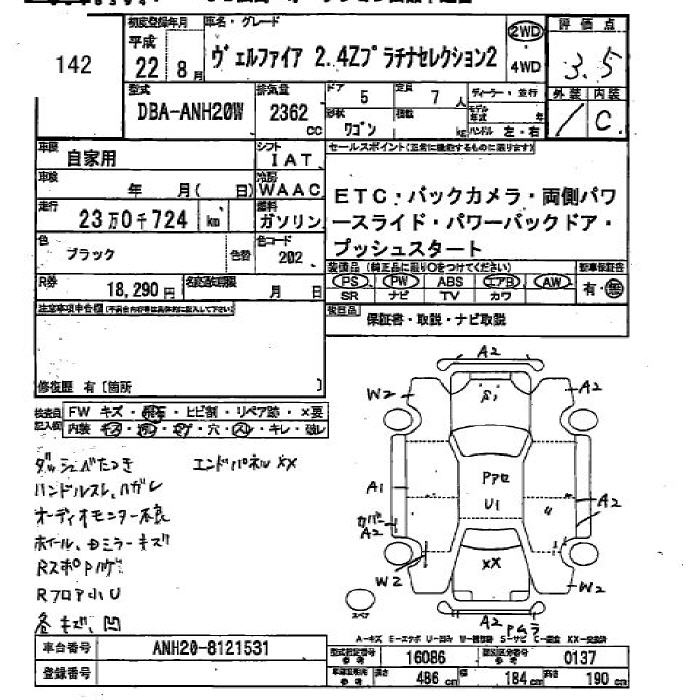 142
初度登録年月
平成
22年 8月
車名・グレード
ヴェルファイア 2.4Zプラチナセレクション2
2WD
4WD
評価点
3.5
外装
内装
C
型式
DBA-ANH20W
排気量
2362
cc
ドア
5
定員
7人
形状
ワゴン
積載
kg
ディーラー・並行
モデル年式
年
ハンドル 左・右
車歴
自家用
シフト
IAT
セールスポイント(正常に機能するものに限ります)
車検
年 月( 日)
冷房
WAAC
ETC・バックカメラ・両側パワ
ースライド・パワーバックドア・
プッシュスタート
走行
23万0千724
km
燃料
ガソリン
色
ブラック
色替
色コード
202
装備品(純正品に限り○をつけてください)
PS PW ABS エアB AW
SR ナビ TV カワ
新車保証書
有・無
R券
18,290円
名変期限
月 日
後日品
保証書・取説・ナビ取説
注意事項申告欄
修復歴 有〔箇所 〕
検査員
記入欄
FW キズ・飛石・ヒビ割・リペア跡・×要
内装・キズ・汚レ・コゲ・穴・スレ・キレ・破レ
ダッシュベたつき
エンドパネルXX
ハンドルスレ、ハガレ
オーディオモニター不良
ホイール、Dミラーキズ
RスポPハゲ
Rフロア小U
各キズ、凹
A2
W2
A2
Pアセ
U1
A1
A2
カバー
A2
XX
W2
W2
A2
Pムラ
スペア
A-キズ E-エクボ U-凹み W-補修跡 S-サビ C-腐食 XX-交換済
車台番号
ANH20-8121531
登録番号
型式指定番号
参考
16086
類別区分番号
参考
0137
車検証明寸
参考
長さ
486 cm
幅
184 cm
高さ
190 cm